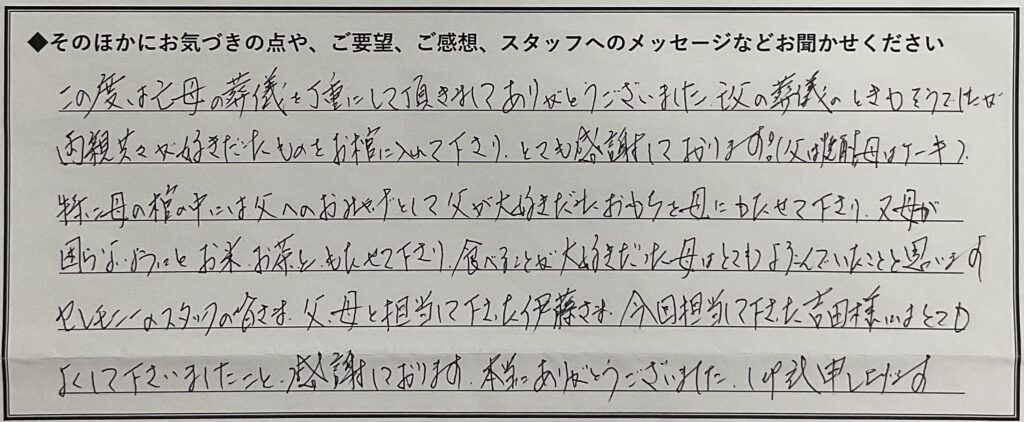 ◆そのほかにお気づきの点や、ご要望、ご感想、スタッフへのメッセージなどお聞かせください
この度は亡母の葬儀を丁重にして頂きましてありがとうございました。父の葬儀のときもそうでしたが
両親共々が好きだったものをお棺に入れて下さり、とても感謝しております。(父は焼酎 母はケーキ)
特に母の棺の中には父へのおみやげとして父が大好きだったおもちを母にもたせて下さり、又母が
困らないようにと お米、お茶をもたせて下さり、食べることが大好きだった母はとてもよろこんでいたことと思います
セレモニーのスタッフの皆さま、父、母と担当して下さった伊藤さま、今回担当して下さった吉田様にはとても
よくして下さいましたこと、感謝しております。本当にありがとうございました。 申し上げます